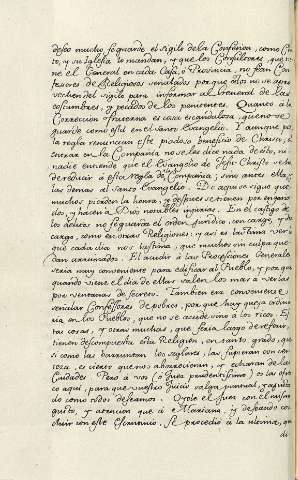 deseo mucho se guarde el sigilo de la Confesion, como Chris
to, y su Iglesia lo mandan, y que los Confesores, que tie
ne el General en cada Casa, o Provincia, no sean Con
fesores de Religiosos señalados porque estos no se apro
vechen del sigilo para informar al General de las
costumbres, y pecados de los penitentes. Quanto a la
Correccion fraterna es cosa escandalosa, que no se
guarde como está en el Santo Evangelio. Y aunque por
la regla renuncien este posible beneficio de Christo, al
entrar en la Compañia no se les dice nada de esto, ni
nadie entiende que el Evangelio de Jesu Christo se ha
de reducir á esta regla de la Compañia; sino antes ella, y
las demas al Santo Evangelio. De aqui se sigue que
muchos pierden la honra, y despues se tienen por engaña
dos, y hacen a Dios notables injurias. En el castigo de
los delitos no se guarda el orden Juridico, con cargo, y des
cargo, como en otras Religiones: y asi es lastima ver
que cada dia nos lastima, que muchos sin culpa que
dan arruinados. El acudir á las Procesiones Generales
seria muy conveniente para edificar al Pueblo, y por que
quando viene el dia de ellas salen los mas a verlas
por ventanas de secreto. Tambien era conveniente
señalar Confesores de pobres, por que hay queja ordina
ria en los Pueblos, que no se acude sino a los ricos. Es
tas cosas, y otras muchas, que seria largo de referir,
tienen descompuesta esta Religion, en tanto grado, que
si como las barruntan los seglares, las supieran con cer
teza, es cierto que nos aborrecieran, y echaran de las
Ciudades. Pero á vos (ó Juez prudentisimo) os las ofrez
co aqui, para que vuestro Juicio salga puntual, y ajusta
do como todos deseamos. Oyole el Juez con el mismo
gusto, y atencion que á Mariana, y deseando con
cluir con este Escrutinio, se procedió á la ultima, que